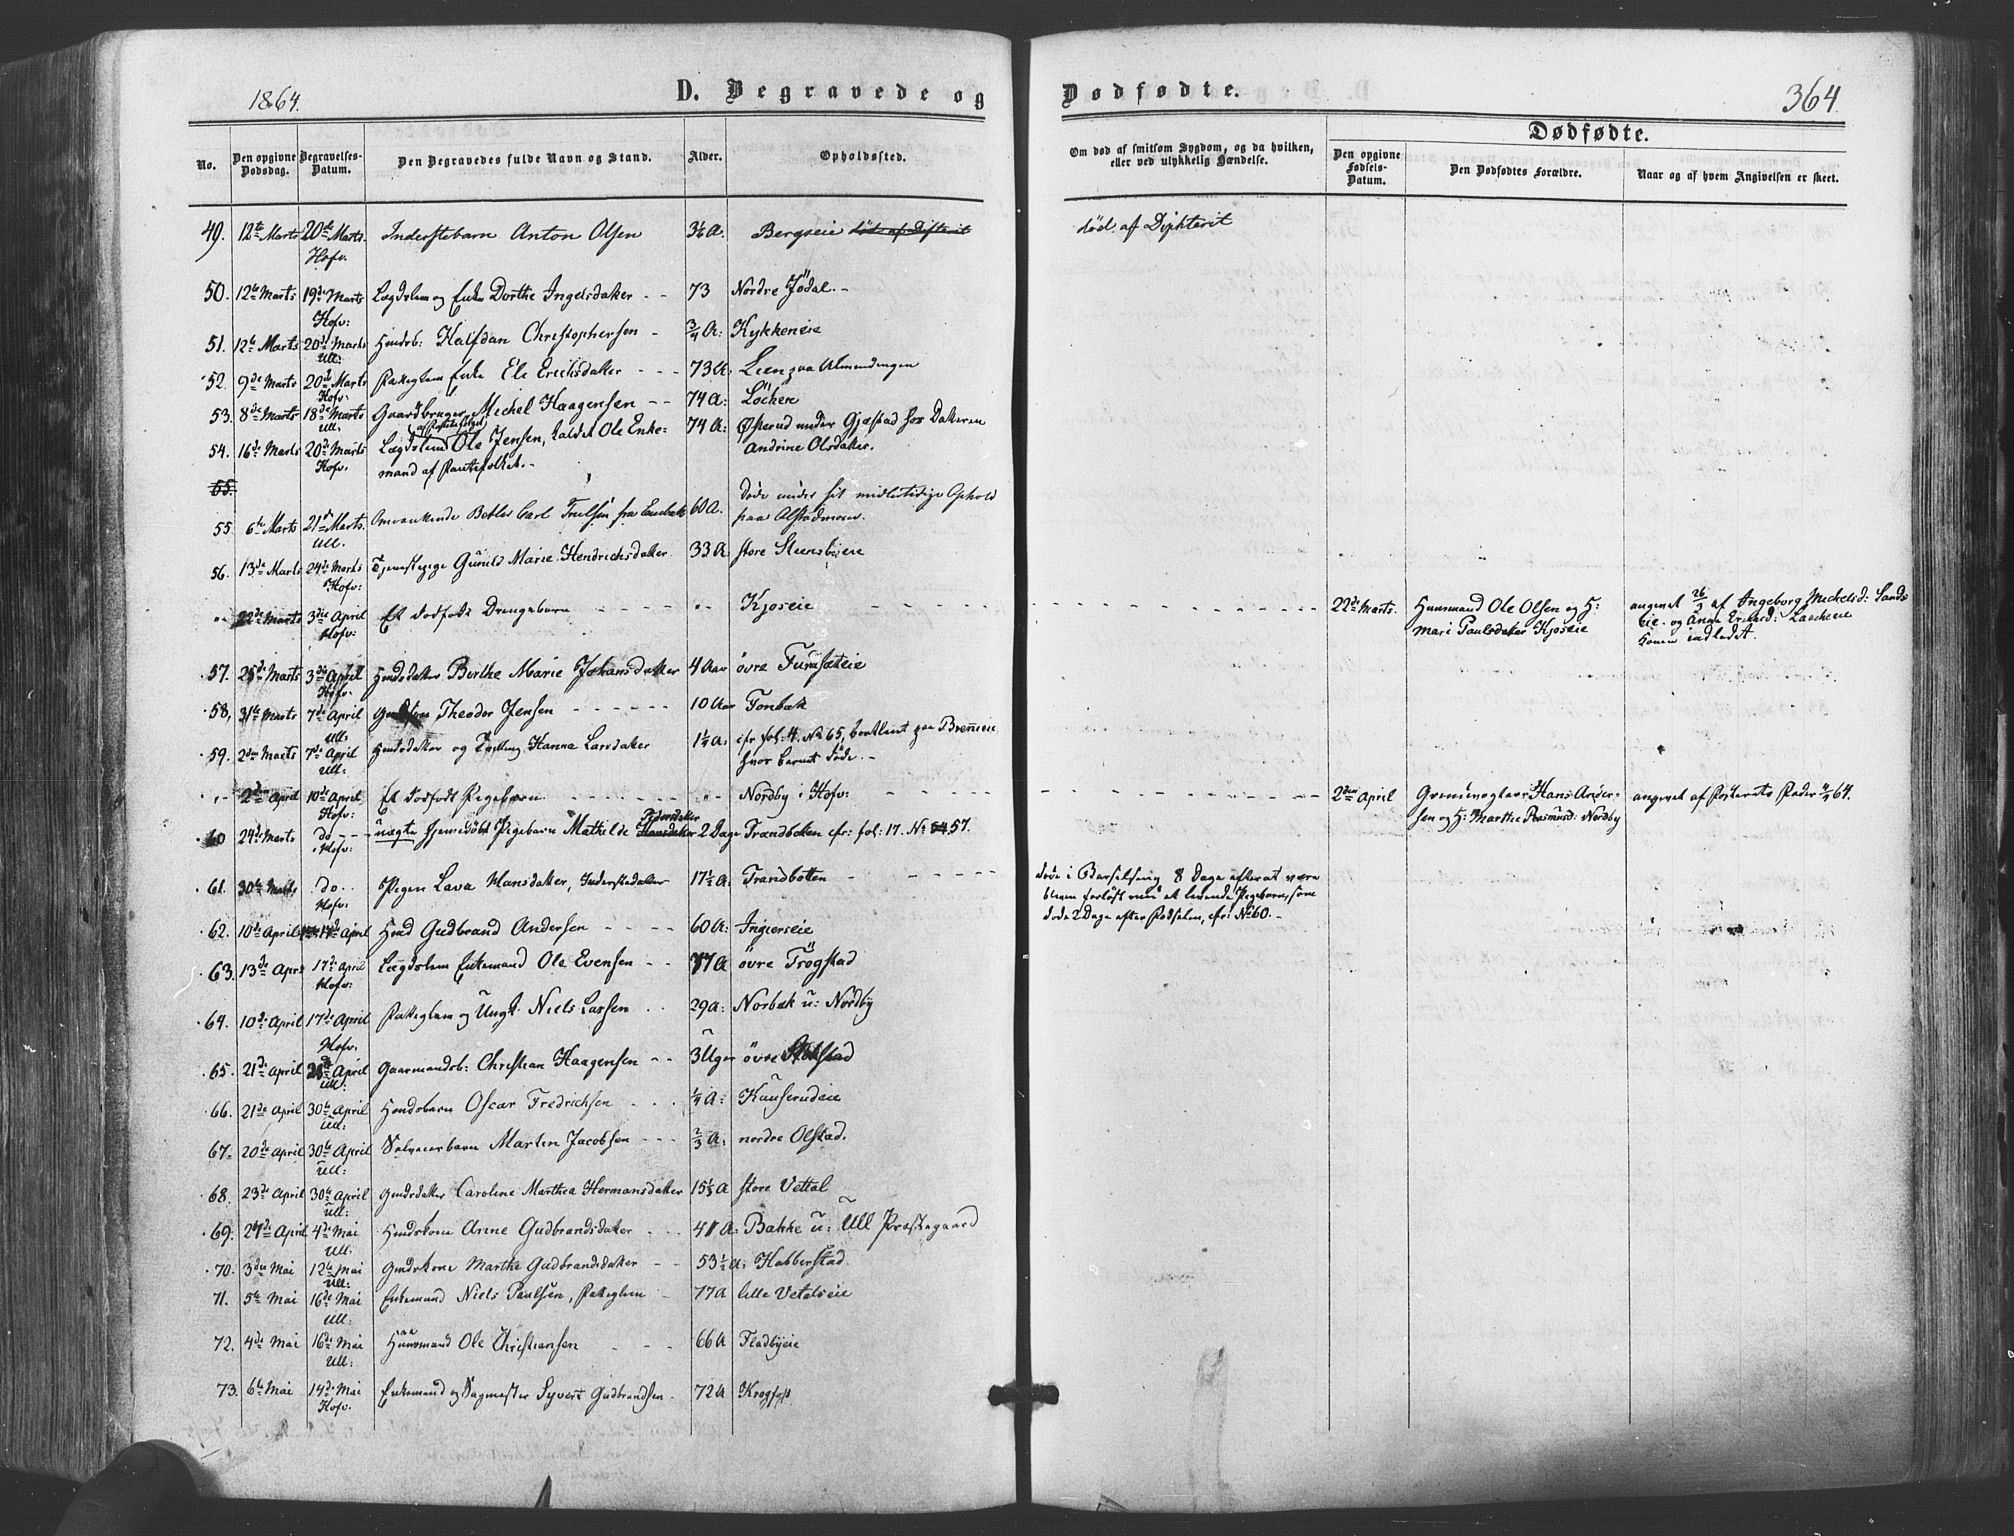 1864.
D. Begravede og
Dødfødte.
364.
No.
Den opgivne Dødsdag.
Begravelses-Datum.
Den Begravedes fulde Navn og Stand.
Alder.
Opholdssted.
Om død af smitsom Sygdom, og da hvilken, eller ved ulykkelig Hændelse.
Dødfødte.
Den opgivne Fødsels-Datum.
Den Dødfødtes Forældre.
Naar og af hvem Angivelsen er skeet.
49. 12te Marts 20de Marts. Hofv. Inderstebarn Anton Olsen 3½ A. Bergseie død af Difterit død af Diphterit
50. 12te Marts 19de Marts Hofv: Lægdslem og Enke Dorthe Ingelsdatter 73 Nordre Jödal.
51. 12te Marts 20de Marts Ull: Huusb: Halfdan Christophersen ¾ A: Kykkeneie
52. 9de Marts 20de Marts Hofv: Enke Ele Ericksdatter 73 A: Lien paa Almendingen
53. 8de Marts 18de Marts Ull: Gaardbruger Michel Haagensen 74 A: Löchen
54. 16de Marts 20de Marts Hofv. Lægdslem Ole Jensen, kaldet Ole Enke- 74 A: Østerud under Gjæstad hos Datteren
mand af Fantefolket. Andrine Olsdatter.
55.
55. 6te Marts 21de Marts. Ull. Omvankende Betler Carl Trulsen fra Enebak 60 A. døde under sit midlertidige Ophold
paa Alstadmoen.
56. 13de Marts 24de Marts Hofv: Tjenestepige Gunild Marie Hendrichsdatter 33 A: store Steensbyeie
22de Marts 3die April Hofv: Et dødfødt Drengebarn Kjoseie 22de Marts. Huusmand Ole Olsen og H: angivet 26/3 af Ingeborg Michelsd: Sands-
Mari Paulsdatter Kjoseie eie og Anne Ericksd:
57. 25de Marts 3die April Hofv: Huusdatter Berthe Marie Johansdatter 4 Aar övre Furusæteie
58, 31te Marts 7de April Ull: Theodor Jensen 10 Aar Tonbæk
59. 2den Marts 7de April Ull: Huusdatter og Tvilling Hanne Larsdatter 1¼ A: cfr fol: 4. No 65, bortsat paa Brenneie
hvor barnet døde.
2den April 10de April Hofv: Et dødfødt Pigebarn Nordby i Hofv: 2den April Hans Ander-
sen og H: Marthe Rasmusd: Nordby angivet af 64.
60 24de Marts do Hofv: uægte hjemmedøbt Pigebarn Mathilde Pedersdatter Hansdatter 2 Dage Trandbotten cfr: fol: 17. No 54 57.
61. 30te Marts do Hofv: Pigen Lava Hansdatter, Inderstedatter 17½ A: Trandbotten døde i Barselseng 8 Dage efterat være
bleven forløst med et levende Pigebarn, som
døde 2 Dage efter Fødselen, cfr: No 60.
62. 10de April 17de April Huusd Gudbrand Andersen 60 A: Ingierseie
63. 13de April 17de April Hofv: Lægdslem Enkemand Ole Evensen 77 A övre Trögstad
64. 10de April 17de April Hofv. og Ungk. Niels Larsen 29 A: Norbak u: Nordby
65. 21de April April Ull: Gaarmandsb: Christian Haagensen 3 Uger övre
66. 21de April 30te April Ull: Huusbarn Oscar Fredrichsen ¼ A: Kauserudeie
67. 20de April 30te April Ull: Selveierbarn Martin Jacobsen ⅔ A: nordre Olstad.
68. 23de April 30te April Ull: Caroline Marthea Hermansdatter 15⅓ A store Vettal
69. 27de April 4de Mai Ull: Huuskone Anne Gudbrandsdatter 41 A: Bakke u: Ull Præstegaard
70. 3die Mai 12te Mai Ull: Gmdskone Marthe Gudbrandsdatter 53½ A: Habberstad.
71. 5te Mai 16de Mai Ull: Enkemand Niels Paulsen, 77 A lille Vetalseie
72. 4de Mai 16de Mai Ull: Huusmand Ole Christiansen 66 A Fladbyeie
73. 6te Mai 14de Mai Hofv. Enkemand og Sagmester Syvert Gudbrandsen 72 A Krogfoss